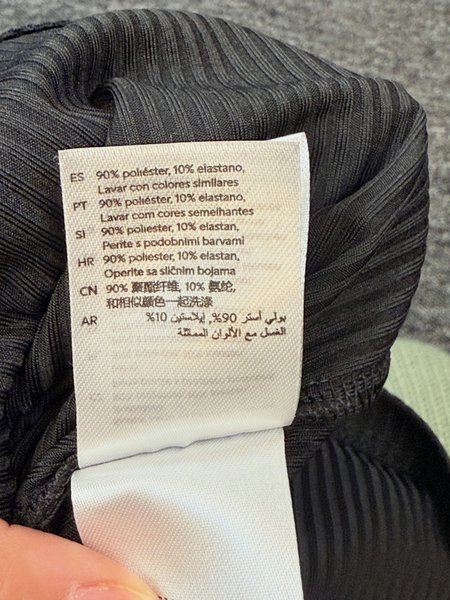 ES 90% poliéster, 10% elastano,
Lavar con colores similares
PT 90% poliéster, 10% elastano,
Lavar com cores semelhantes
SI 90% poliester, 10% elastan,
Perite s podobnimi barvami
HR 90% poliester, 10% elastan,
Operite sa sličnim bojama
CN 90% 聚酯纤维, 10% 氨纶,
和相似颜色一起洗涤
AR بولي أستر 90%, إيلاستين 10%
الغسل مع الألوان المماثلة